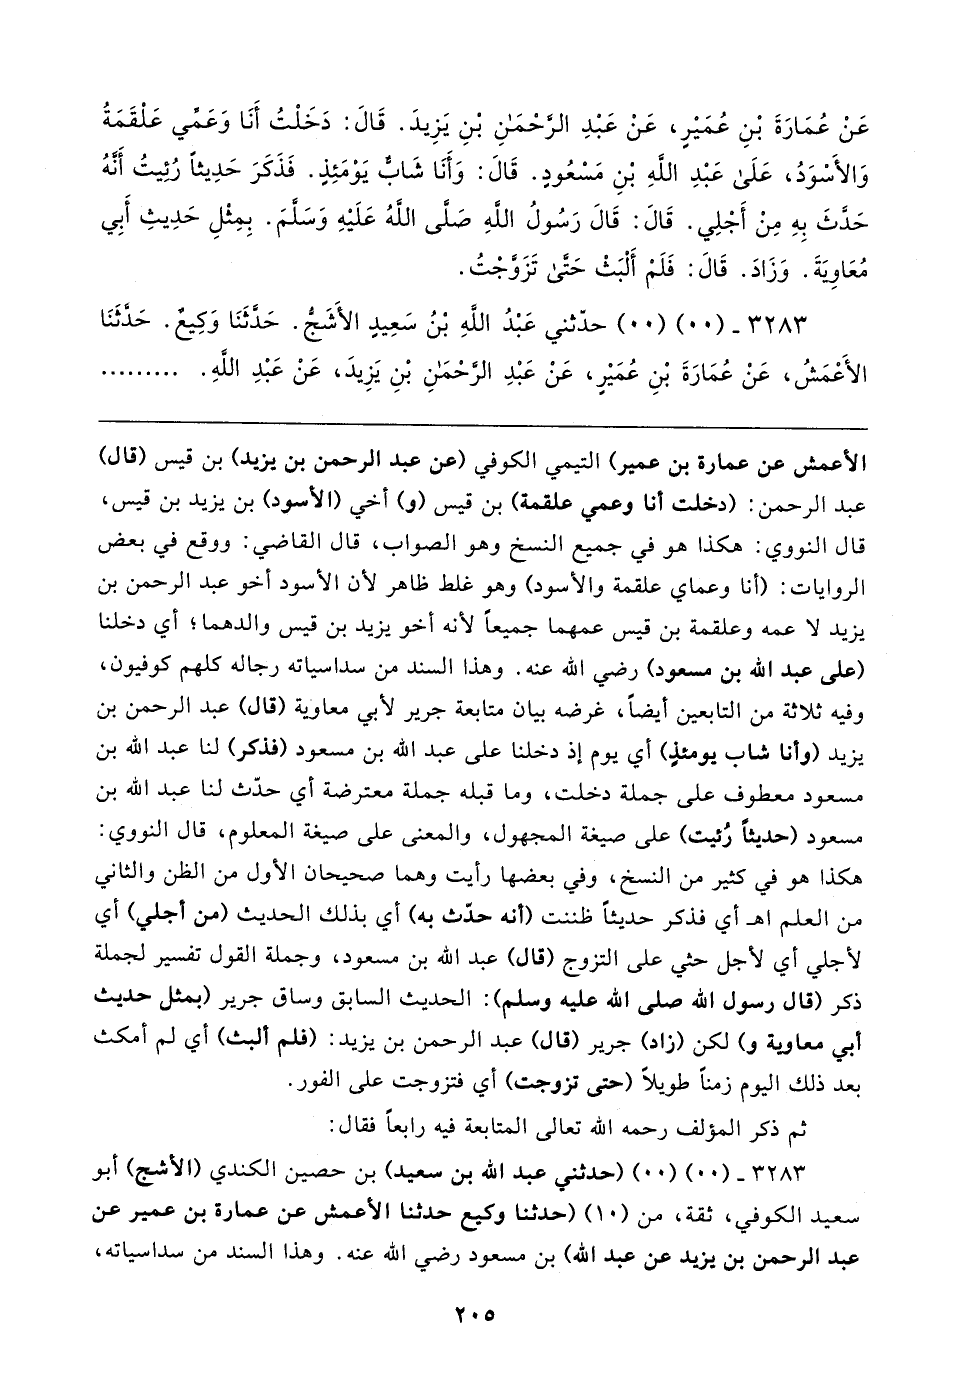 عَنْ عُمَارَةَ بْنِ عُمَيْرٍ، عَنْ عَبْدِ الرَّحْمَٰنِ بْنِ يَزِيدَ. قَالَ: دَخَلْتُ أَنَا وَعَمِّي عَلْقَمَةُ
وَالأَسْوَدُ، عَلَىٰ عَبْدِ اللَّهِ بْنِ مَسْعُودٍ. قَالَ: وَأَنَا شَابٌّ يَوْمَئِذٍ. فَذَكَرَ حَدِيثاً رُئِيتُ أَنَّهُ
حَدَّثَ بِهِ مِنْ أَجْلِي. قَالَ: قَالَ رَسُولُ اللَّهِ صَلَّى اللَّهُ عَلَيْهِ وَسَلَّمَ. بِمِثْلِ حَدِيثِ أَبِي
مُعَاوِيَةَ. وَزَادَ. قَالَ: فَلَمْ أَلْبَثْ حَتَّىٰ تَزَوَّجْتُ.
٣٢٨٣ - (٠٠) (٠٠) حدّثني عَبْدُ اللَّهِ بْنُ سَعِيدٍ الأَشَجُّ. حَدَّثَنَا وَكِيعٌ. حَدَّثَنَا
الأَعْمَشُ، عَنْ عُمَارَةَ بْنِ عُمَيْرٍ، عَنْ عَبْدِ الرَّحْمَٰنِ بْنِ يَزِيدَ، عَنْ عَبْدِ اللَّهِ. .........
الأعمش عن عمارة بن عمير) التيمي الكوفي (عن عبد الرحمن بن يزيد) بن قيس (قال)
عبد الرحمن: (دخلت أنا وعمي علقمة) بن قيس (و) أخي (الأسود) بن يزيد بن قيس،
قال النووي: هكذا هو في جميع النسخ وهو الصواب، قال القاضي: ووقع في بعض
الروايات: (أنا وعماي علقمة والأسود) وهو غلط ظاهر لأن الأسود أخو عبد الرحمن بن
يزيد لا عمه وعلقمة بن قيس عمهما جميعاً لأنه أخو يزيد بن قيس والدهما؛ أي دخلنا
(على عبد الله بن مسعود) رضي الله عنه. وهذا السند من سداسياته رجاله كلهم كوفيون،
وفيه ثلاثة من التابعين أيضاً، غرضه بيان متابعة جرير لأبي معاوية (قال) عبد الرحمن بن
يزيد (وأنا شاب يومئذٍ) أي يوم إذ دخلنا على عبد الله بن مسعود (فذكر) لنا عبد الله بن
مسعود معطوف على جملة دخلت، وما قبله جملة معترضة أي حدّث لنا عبد الله بن
مسعود (حديثاً رُئيت) على صيغة المجهول، والمعنى على صيغة المعلوم، قال النووي:
هكذا هو في كثير من النسخ، وفي بعضها رأيت وهما صحيحان الأول من الظن والثاني
من العلم اهـ أي فذكر حديثاً ظننت (أنه حدّث به) أي بذلك الحديث (من أجلي) أي
لأجلي أي لأجل حثي على التزوج (قال) عبد الله بن مسعود، وجملة القول تفسير لجملة
ذكر (قال رسول الله صلى الله عليه وسلم): الحديث السابق وساق جرير (بمثل حديث
أبي معاوية و) لكن (زاد) جرير (قال) عبد الرحمن بن يزيد: (فلم ألبث) أي لم أمكث
بعد ذلك اليوم زمناً طويلاً (حتى تزوجت) أي فتزوجت على الفور.
ثم ذكر المؤلف رحمه الله تعالى المتابعة فيه رابعاً فقال:
٣٢٨٣ - (٠٠) (٠٠) (حدثني عبد الله بن سعيد) بن حصين الكندي (الأشج) أبو
سعيد الكوفي، ثقة، من (١٠) (حدثنا وكيع حدثنا الأعمش عن عمارة بن عمير عن
عبد الرحمن بن يزيد عن عبد الله) بن مسعود رضي الله عنه. وهذا السند من سداسياته،
٢٠٥